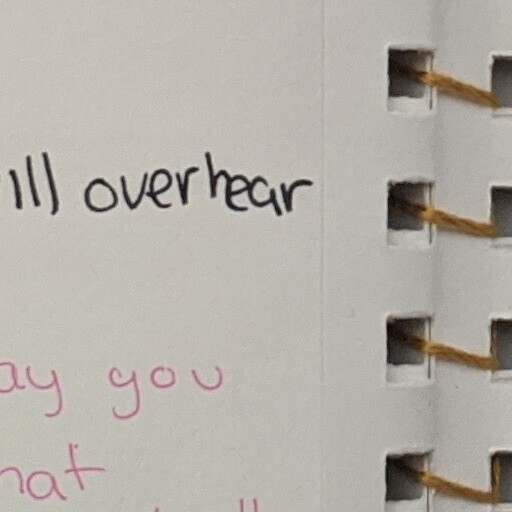 ill overhear
ay you
hat